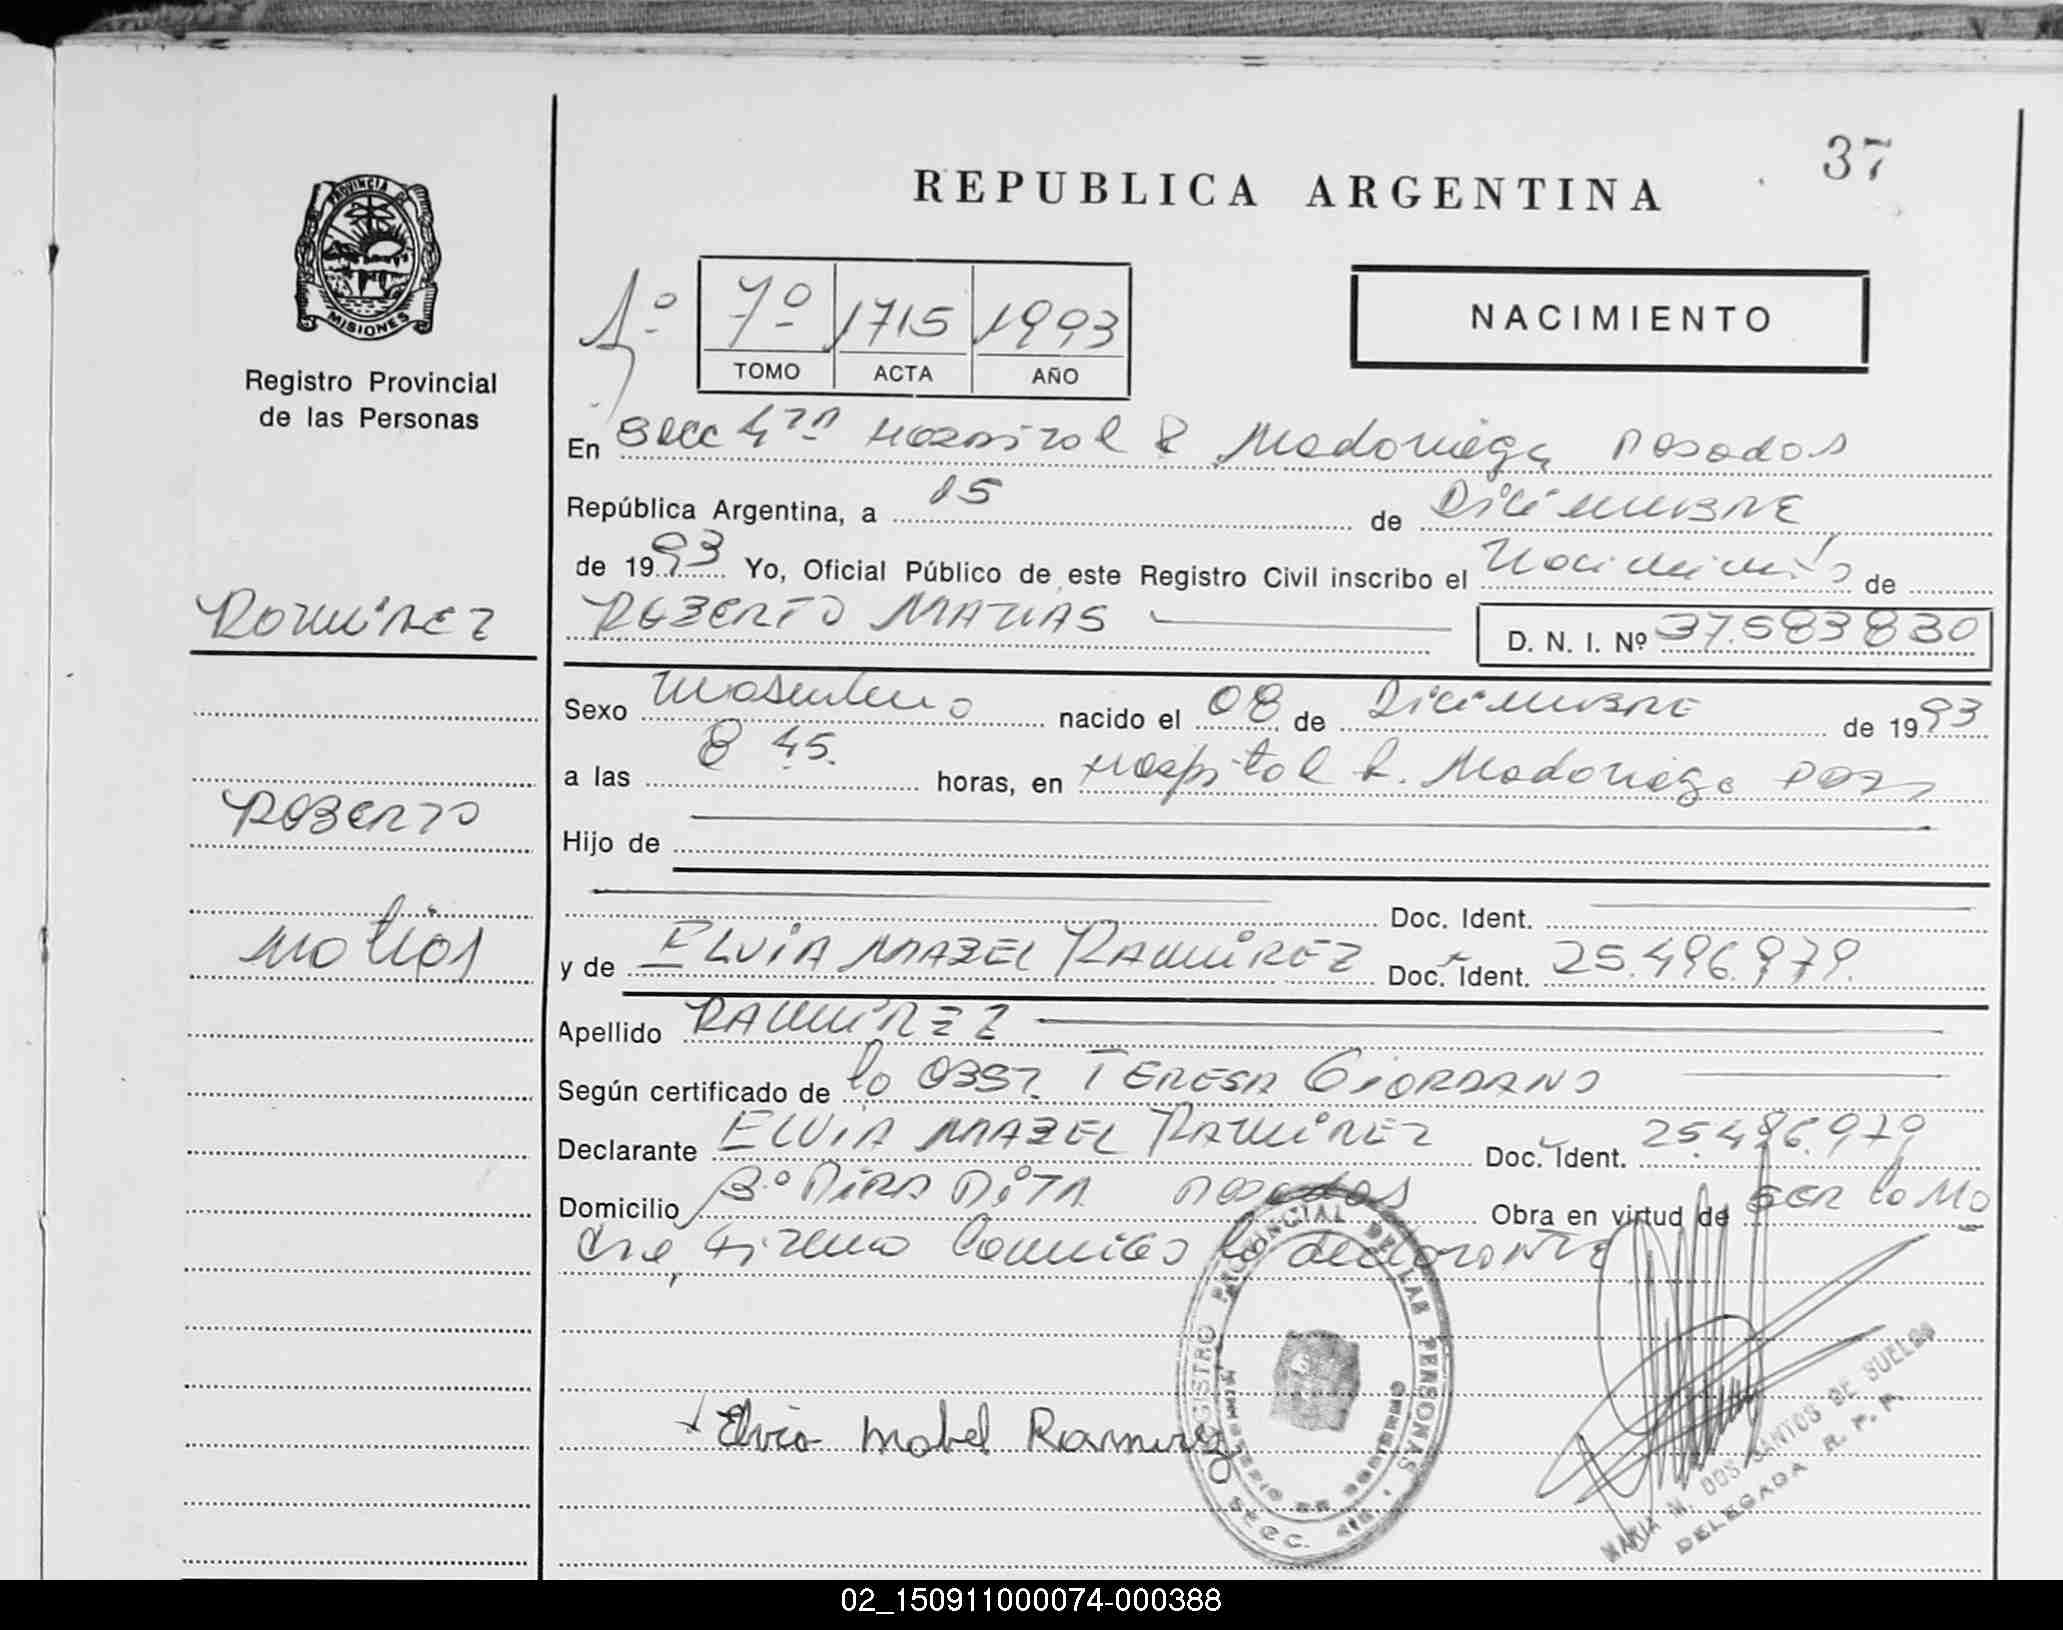 37
REPUBLICA ARGENTINA
PROVINCIA DE
MISIONES
Registro Provincial
de las Personas
1º 7º 1715 1993
TOMO ACTA AÑO
NACIMIENTO
En Secc 4ta Hospital R Madariaga Posadas
República Argentina, a 15 de Diciembre
de 1993 Yo, Oficial Público de este Registro Civil inscribo el Nacimiento de
Ramirez
ROBERTO MATIAS D. N. I. Nº 37.583830
Sexo Masculino nacido el 08 de Diciembre de 1993
a las 8 45. horas, en Hospital R. Madariaga
Roberto
Hijo de
Doc. Ident.
Matias
y de ELVIA MABEL RAMIREZ Doc. Ident. 25.496.979.
Apellido RAMIREZ
Según certificado de la OBST. TERESA GIORDANO
Declarante ELVIA MABEL RAMIREZ Doc. Ident. 25.496.979
Domicilio Posadas Obra en virtud de ser la Ma
dre, firma la declarante
Elvia Mabel Ramirez
REGISTRO PROVINCIAL DE LAS PERSONAS
MARIA M. DOS SANTOS DE SUELDO
DELEGADA R. P. P.
02_150911000074-000388